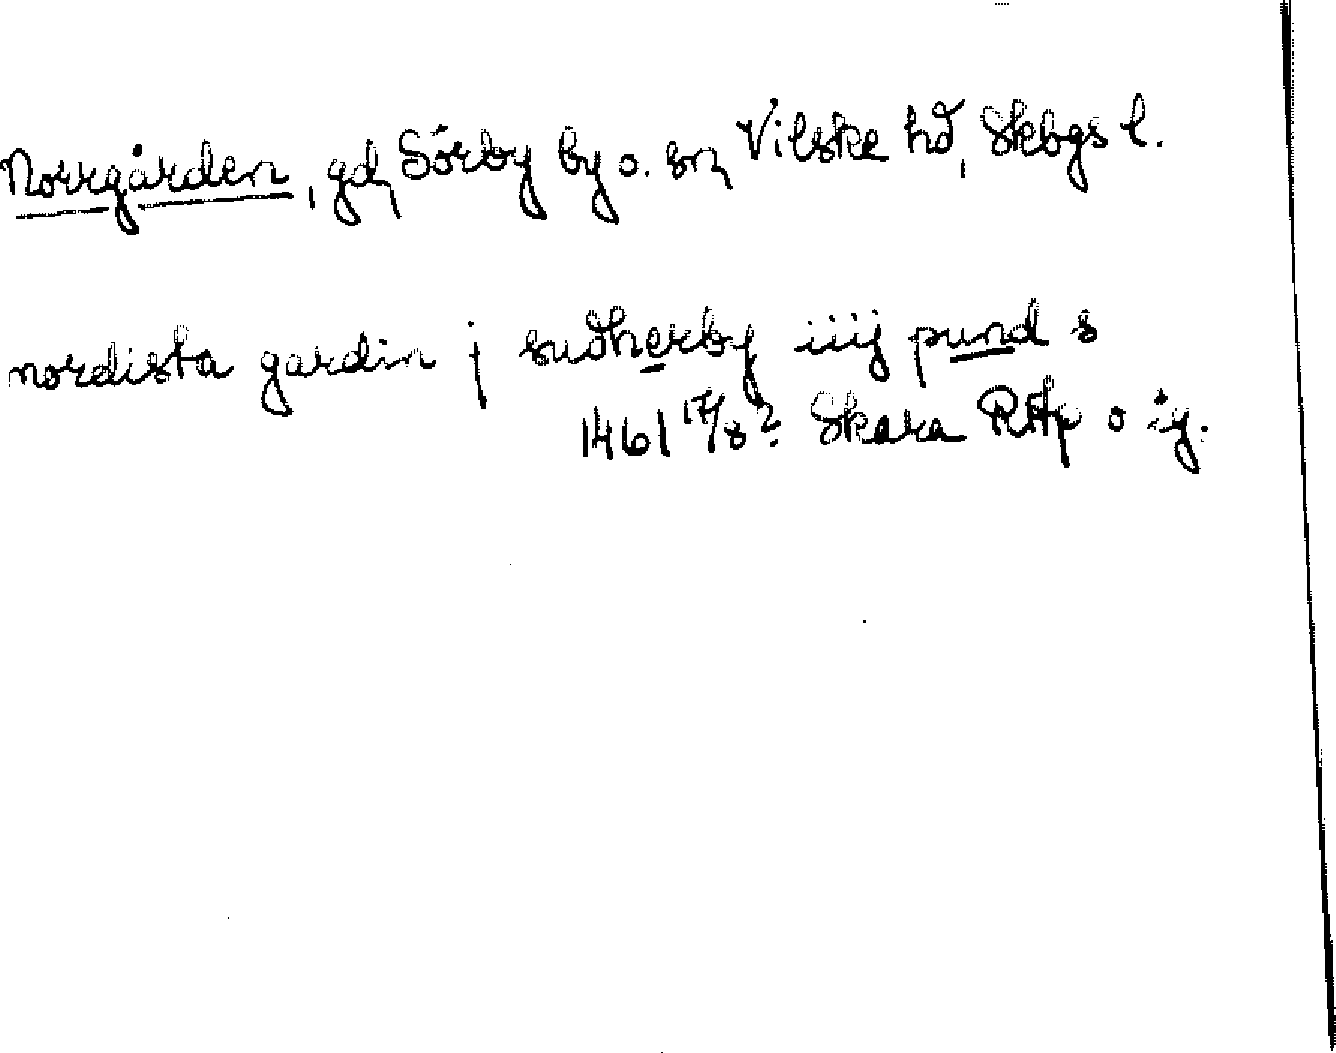 Norrgården, gd, Sörby by o. sn, Vilske hd, Skbgs l.
nordista gardin j sudherby iiij pund s
1461 17/8? Skara RAp o ig.